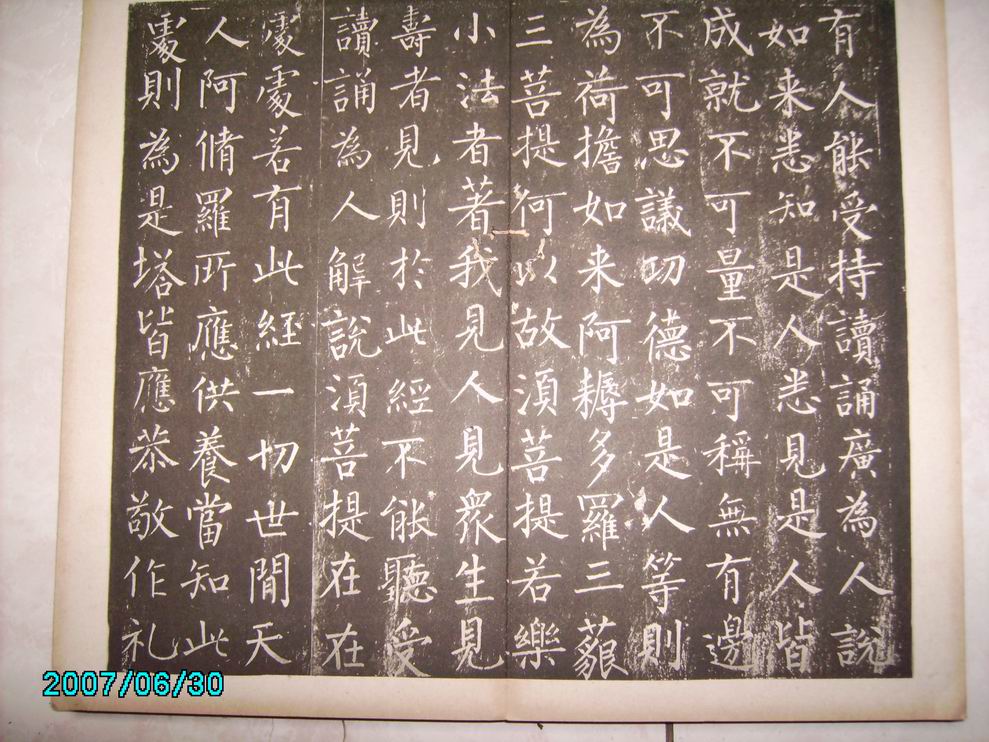 有人能受持讀誦廣為人說
如来悉知是人悉見是人皆
成就不可量不可稱無有邊
不可思議功德如是人等則
為荷擔如来阿耨多羅三藐
三菩提何以故須菩提若樂
小法者著我見人見眾生見
壽者見則於此經不能聽受
讀誦為人解說須菩提在在
處處若有此經一切世間天
人阿脩羅所應供養當知此
處則為是塔皆應恭敬作礼
2007/06/30